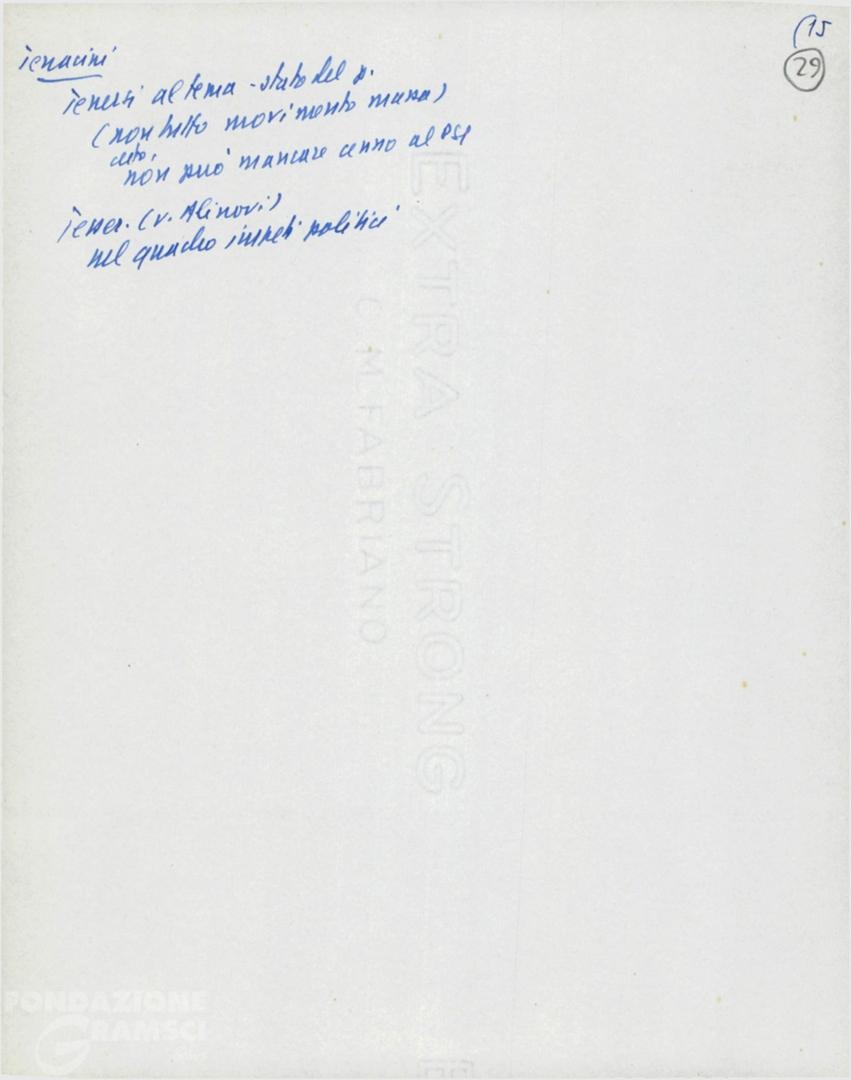 (15
29
Terracini
Tenersi al tema - stato del p.
(non tutto movimento massa)
certo,
non può mancare cenno al PSI
Tesser. (v. Alinovi)
nel quadro politici
EXTRA STRONG
C. M. FABRIANO
FONDAZIONE
GRAMSCI